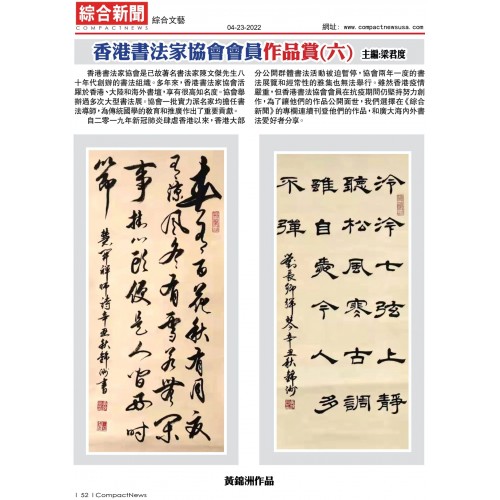 綜合新聞
綜合文藝
04-23-2022
網址: www.compactnewsusa.com
香港書法家協會會員作品賞(六)
主編:梁君度
香港書法家協會是已故著名書法家陳文傑先生八
十年代創辦的書法組織。多年來,香港書法家協會活
躍於香港、大陸和海外書壇,享有很高知名度。協會舉
辦過多次大型書法展。協會一批實力派名家均擔任書
法導師,為傳統國學的教育和推廣作出了重要貢獻。
自二零一九年新冠肺炎肆虐香港以來,香港大部
分公開群體書法活動被迫暫停,協會兩年一度的書
法展覽和經常性的雅集也無法舉行。雖然香港疫情
嚴重,但香港書法協會會員在抗疫期間仍堅持努力創
作,為了讓他們的作品公開面世,我們選擇在《綜合
新聞》的專欄連續刊登他們的作品,和廣大海內外書
法愛好者分享。
春有百花秋有月夏
有涼風冬有雪若無閑
事挂心頭便是人間好時
節
慧開禪師詩辛丑秋錦洲書
泠泠七弦上靜
聽松風寒古調
雖自愛今人多
不彈
劉長卿彈琴辛丑秋錦洲
黃錦洲作品
| 52 | CompactNews